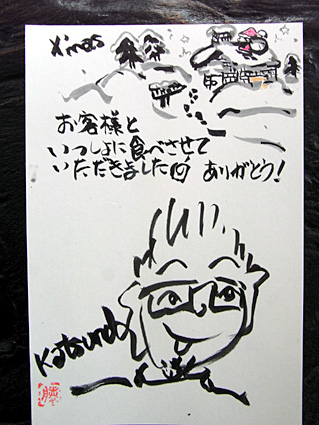 X'mas
お客様と
いっしょに食べさせて
いただきました ありがとう!
Katsundo
勝